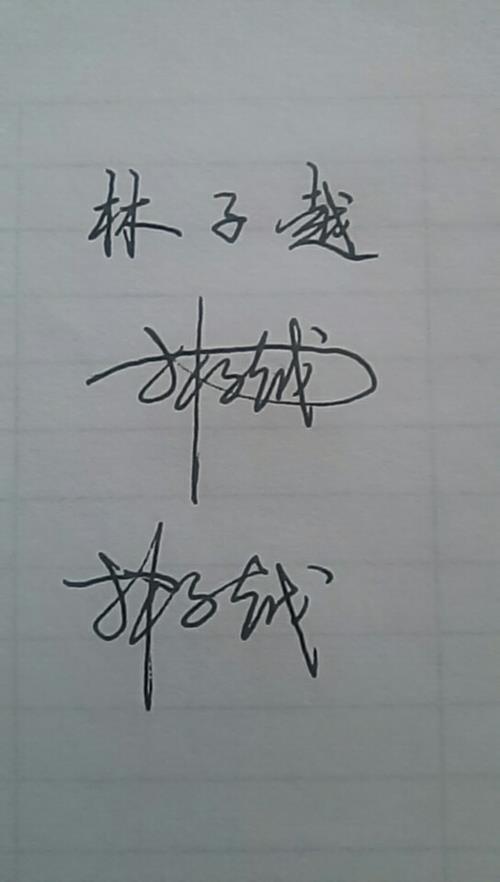 林子越
林子越
林子越